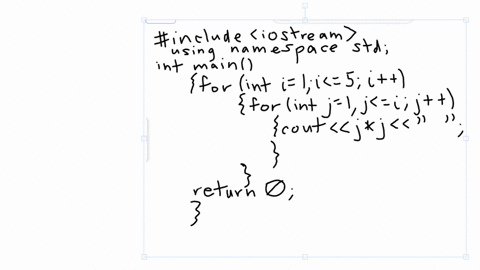 #include <iostream>
using namespace std;
int main()
{for (int i=1;i<=5; i++)
{for (int j=1,j<=i; j++)
{cout<<j*j<<" ";
}
}
return 0;
}